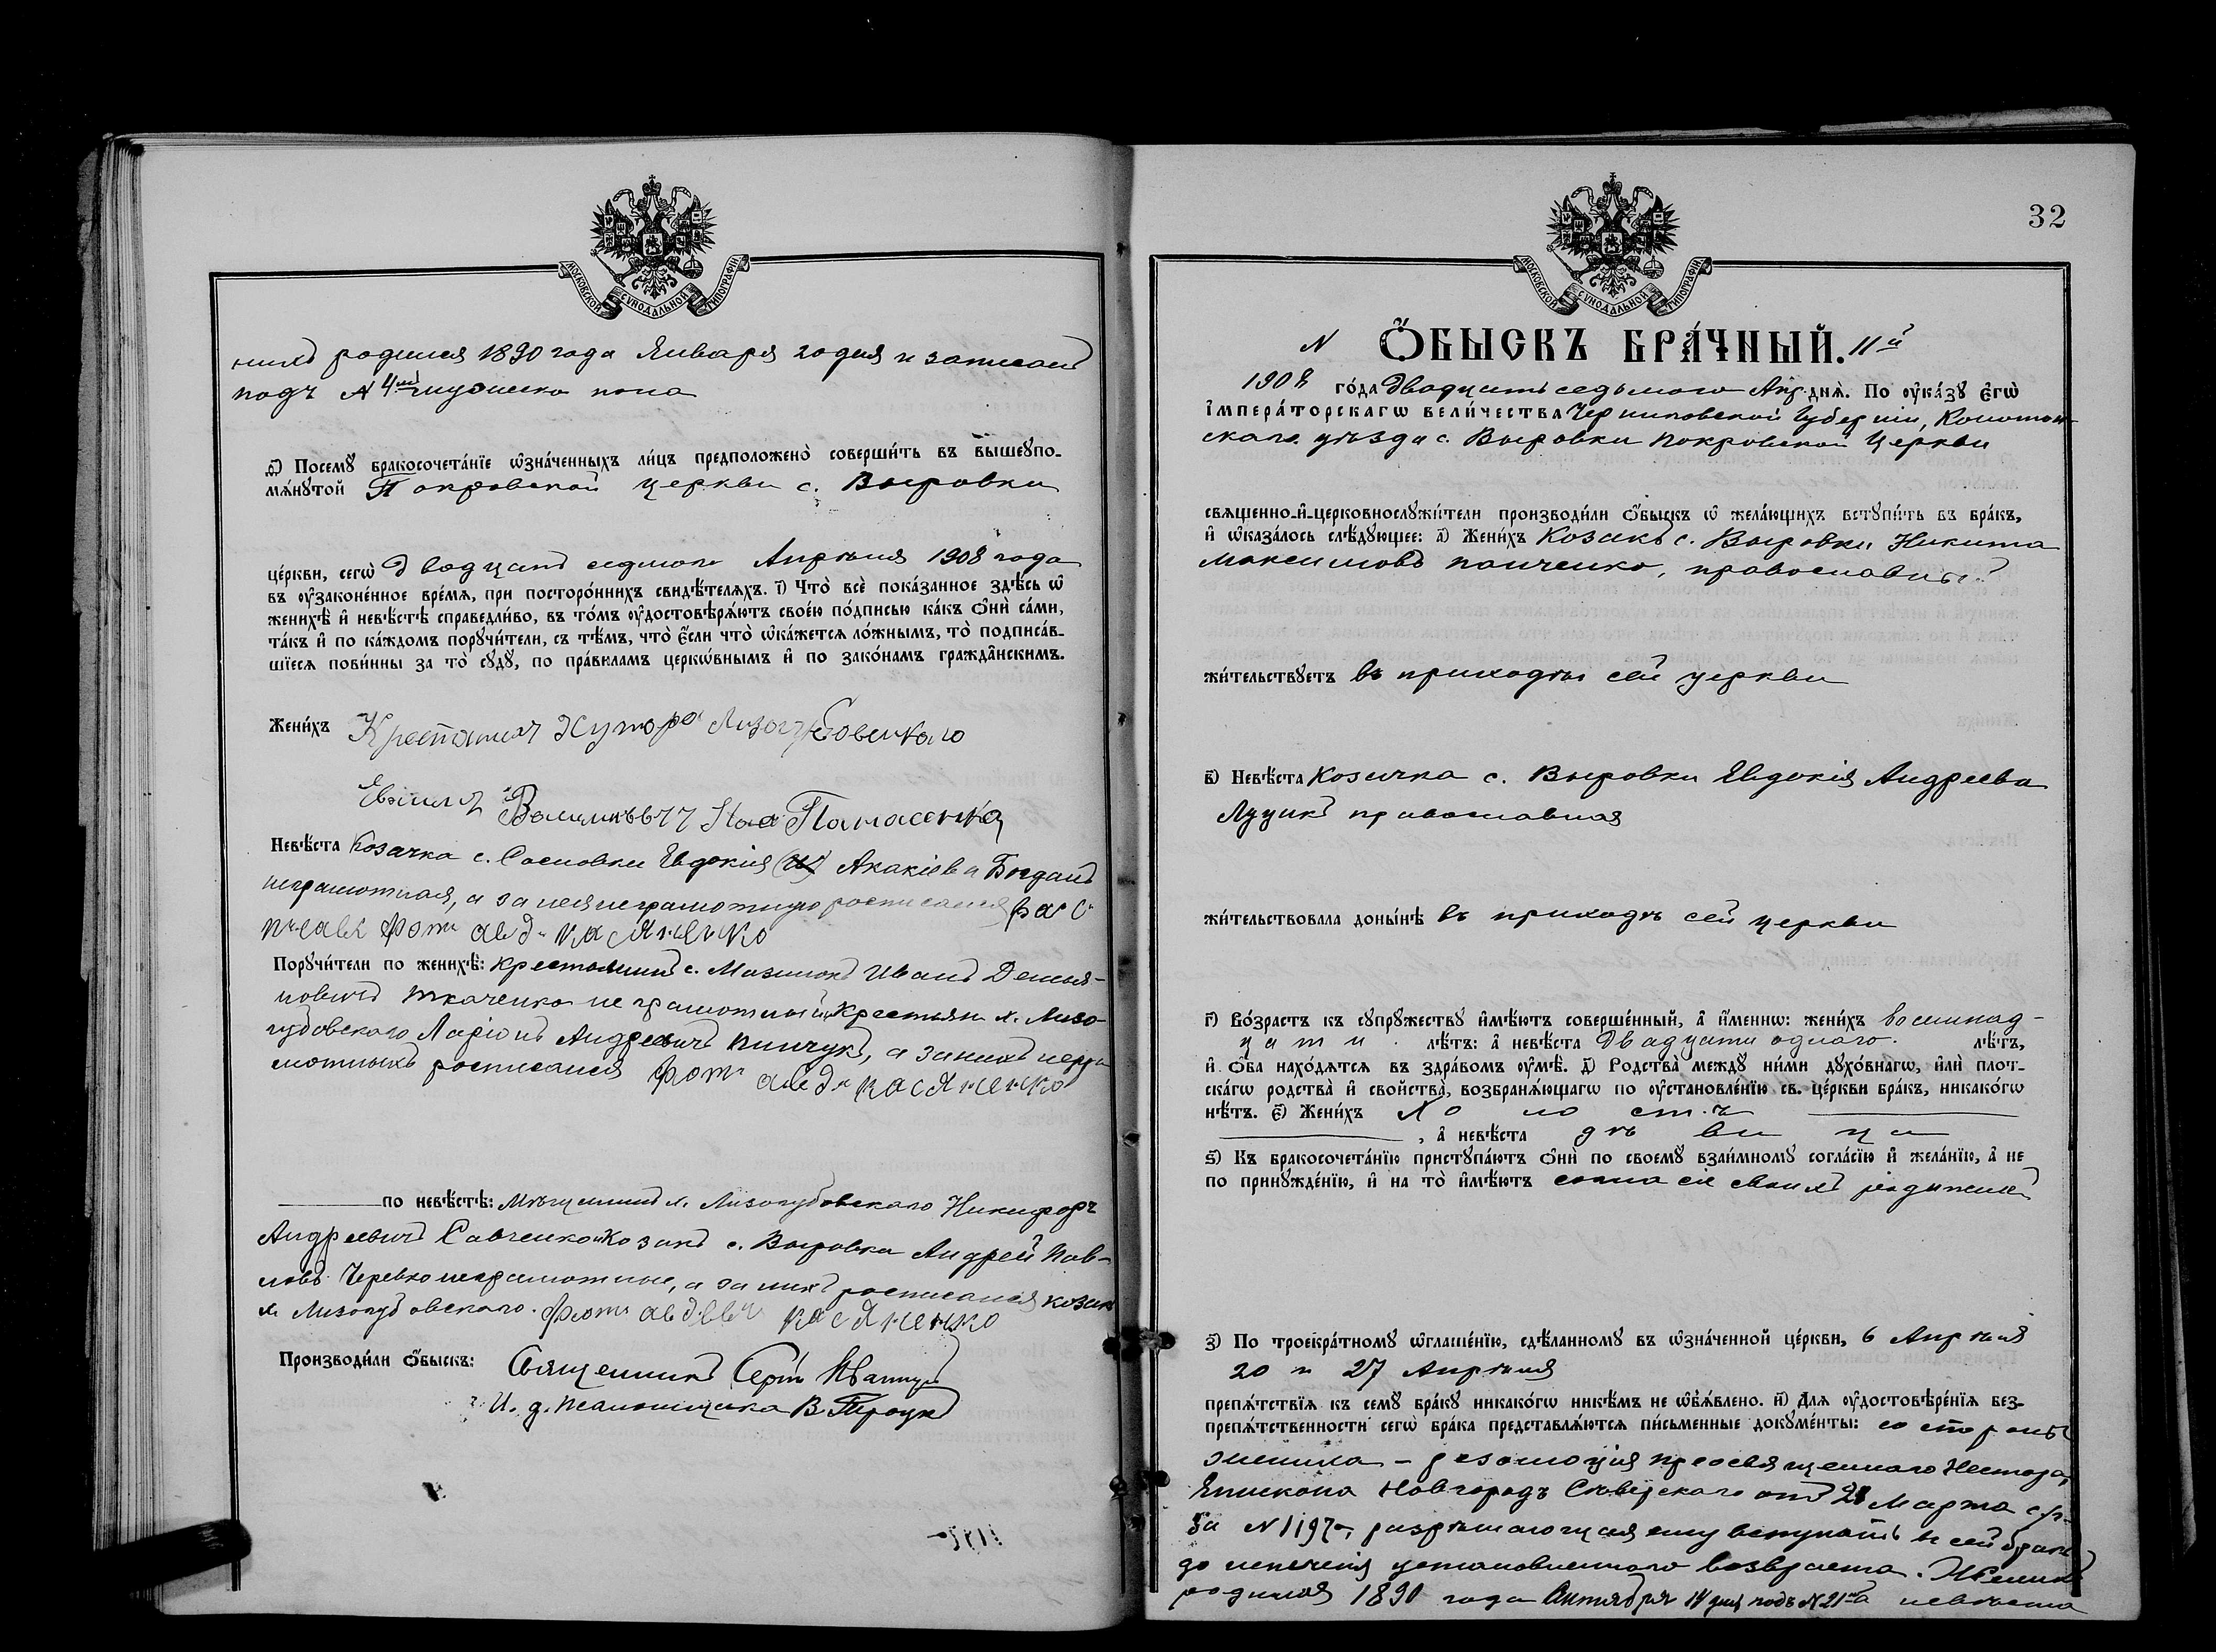 МОСКОВСКОЙ СѴНОДАЛЬНОЙ ТИПОГРАФІИ
нихъ родился 1890 года Января 20 дня и записанъ
подъ № 4мъ
д҃і) Посемꙋ̀ бракосочета́нїе ѡ҆зна́ченныхъ ли́цъ предположено̀ соверши́ть въ вышеꙋпо-
мѧ́нꙋтой Покровской церкви с. Выровки
це́ркви, сегѡ̀ двадцать седмого Апрѣля 1908 года
въ ᲂу҆зако́не́нное вре́мѧ, при посторо́ннихъ свидѣ́телѧхъ. і҃) Что̀ всѐ пока́занное здѣ́сь ѡ҆
женихѣ̀ и҆ невѣ́стѣ справедли́во, въ то́мъ ᲂу҆достовѣрѧ́ютъ свое́ю по́дписью ка́къ ѻ҆нѝ са́ми,
та́къ и҆ по ка́ждомъ порꙋчи́тели, съ тѣ́мъ, что̀ є҆́сли что̀ ѡ҆ка́жетсѧ ло́жнымъ, то̀ подписа́в-
шїесѧ пови́нны за то̀ сꙋдꙋ̀, по пра́виламъ церкѡ́внымъ и҆ по зако́намъ гражда̂нскимъ.
Жени́хъ Крестянин Хутора Лизогубовского
Невѣ́ста Козачка с. Сосновки Евдокія Акакіева Богданъ
неграмотная, а за нея неграмотную росписался рос
касяненко
Порꙋчи́тели по женихѣ̀: Крестьянинъ с. Иванъ Демья-
новичъ Ткаченко неграмотный и Крестьян. х. Лизо-
губовского Ларіонъ Андреевичъ Пинчукъ, а за нихъ негра
мотныхъ росписался касяненко
по невѣ́стѣ: Мѣщанинъ х. Лизогубовского Никифоръ
Андреевичъ Савченко и Козакъ с. Выровка Андрей Пав-
ловъ Черевко неграмотные, а за нихъ росписался козакъ
х. Лизогубовского касяненко
Производи́ли ѻ҆́быскъ: Священникъ
И. д. псаломщика В. Троцк
32
МОСКОВСКОЙ СѴНОДАЛЬНОЙ ТИПОГРАФІИ
N Ѻ҆́БЫСКЪ БРА́ЧНЫЙ. 11й
1908 го́да двадцать седьмого Апр. днѧ̀. По ᲂу҆ка́зꙋ є҆гѡ̀
і҆мпера́торскагѡ вели́чества Черниговской Губерніи, Конотоп-
скаго уѣзда с. Выровки Покровской Церкви
свѧщенно-и҆-церковнослꙋжи́тели производи́ли ѻ҆́быскъ ѡ҆ жела́ющихъ встꙋпи́ть въ бра́къ,
и҆ ѡ҆каза́лось слѣ́дꙋющее: а҃) Жени́хъ Козакъ с. Выровки Никита
Максимовъ Панченко, православный
жи́тельствꙋетъ въ приходѣ сей церкви
в҃) Невѣ́ста Козачка с. Выровки Евдокія Андреева
Луцикъ православная
жи́тельствовала доны́нѣ въ приходѣ сей церкви
г҃) Во́зрастъ къ сꙋпрꙋ́жествꙋ и҆мѣ́ютъ соверше́нный, а҆ и҆́меннѡ: жени́хъ восминад-
цати лѣ́тъ: а҆ невѣ́ста двадцати одного. лѣ́тъ,
и҆ ѻ҆́ба нахо́дѧтсѧ въ здра́вомъ ᲂу҆мѣ̀. д҃) Родства̀ междꙋ̀ ни́ми дꙋхо́внагѡ, и҆лѝ плот-
ска́гѡ родства̀ и҆ свойства̀, возбранѧ́ющагѡ по ᲂу҆становле́нїю св. це́ркви бра́къ, никако́гѡ
нѣ́тъ. є҃) Жени́хъ холостъ
, а҆ невѣ́ста дѣвица
ѕ҃) Къ бракосочета́нїю пристꙋпа́ютъ ѻ҆нѝ по своемꙋ̀ взаи́мномꙋ согла́сїю и҆ жела́нїю, а҆ не
по принꙋжде́нїю, и҆ на то̀ и҆мѣ́ютъ согласіе своихъ родителей
з҃) По троекра́тномꙋ ѡ҆глаше́нїю, сдѣ́ланномꙋ въ ѡ҆зна́ченной це́ркви, 6 Апрѣля
20 и 27 Апрѣля
препѧ́тствїѧ къ семꙋ̀ бра́кꙋ никако́гѡ никѣ́мъ не ѡ҆б̾ѧ́влено. и҃) Длѧ ᲂу҆достовѣре́нїѧ без-
препѧ́тственности сегѡ̀ бра́ка представлѧ́ютсѧ пи́сьменные докꙋме́нты: со стороны
жениха – резолюція преосвященнаго Нестора,
Епископа Новгородъ Сѣверскаго отъ 21 Марта с/г.
за N 1197, разрѣшающая ему вступить в сей бракъ
до истеченія установленнаго возраста. Женихъ
родился 1890 года Октября 14 дня подъ N 21мъ невѣста